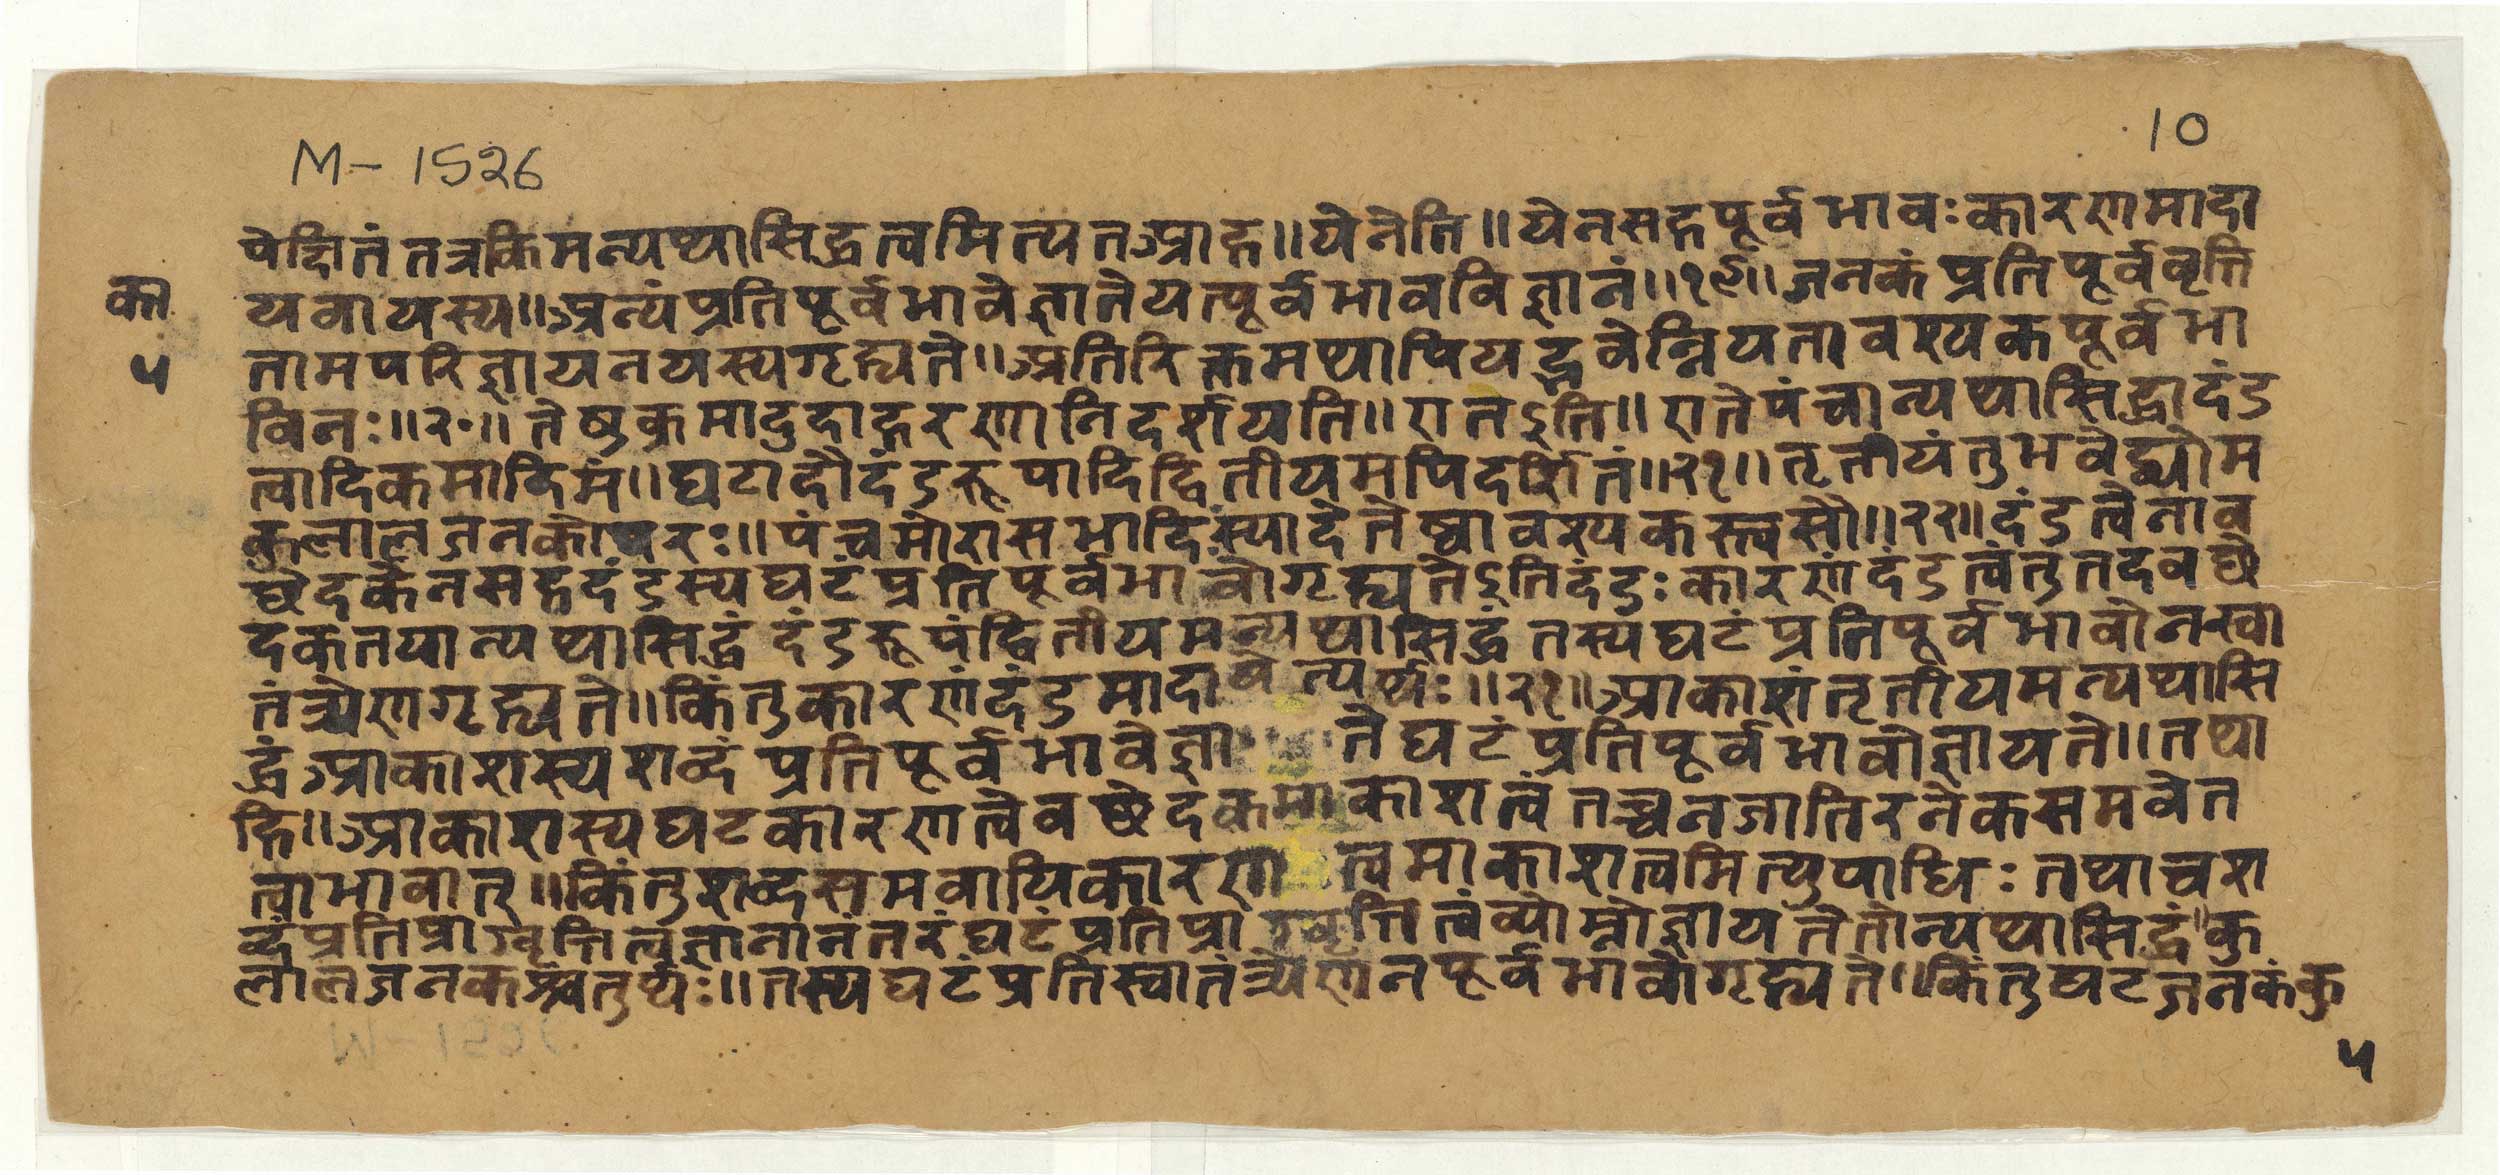 M-1526
10
पेक्षितं तत्रकिमन्यथासिद्धत्वमित्यतआह॥येनेति॥येनसहपूर्वभावःकारणमादा
का
यवायस्य॥अन्यंप्रतिपूर्वभावेज्ञातेयत्पूर्वभावविज्ञानं॥१९॥जनकंप्रतिपूर्ववृत्ति
५
तामपरिज्ञायनयस्यगृह्यते॥अतिरिक्तमथापियद्भवेन्नियतावश्यकपूर्वभा
विनः॥२॰॥तेषुक्रमादुदाहरणानिदर्शयति॥एतइति॥एतेपंचान्यथासिद्धादंड
त्वादिकमादिमं॥घटादौदंडरूपादिद्वितीयमपिदर्शितं॥२१॥तृतीयंतुभवेद्व्योम
कुलालजनकोपरः॥पंचमोरासभादिःस्यादेतेष्वावश्यकस्त्वसौ॥२२॥दंडत्वेनाव
छेदकेनसहदंडस्यघटंप्रतिपूर्वभावोगृह्यतेइतिदंडःकारणंदंडत्वंतुतदवछे
दकंतयान्यथासिद्धं दंडरूपंद्वितीयमन्यथासिद्धं तस्यघटंप्रतिपूर्वभावोनस्वा
तंत्र्येणगृह्यते॥किंतुकारणंदंडमादायेत्यर्थः॥२१॥आकाशंतृतीयमन्यथासि
द्धंआकाशस्यशब्दंप्रतिपूर्वभावेज्ञातेघटंप्रतिपूर्वभावोज्ञायते॥तथा
हि॥आकाशस्यघटकारणत्वेवछेदकमाकाशत्वंतच्चनजातिरनेकसमवेत
त्वाभावात्॥किंतुशब्दसमवायिकारणत्वमाकाशत्वमित्युपाधिःतथाचश
ब्दंप्रतिप्राग्वृत्तित्वज्ञानानंतरंघटंप्रतिप्राग्वृत्तित्वंव्योम्नोज्ञायतेतोन्यथासिद्धं॥कु
लालजनकश्चतुर्थः॥तस्यघटंप्रतिस्वातंत्र्येणनपूर्वभावोगृह्यते॥किंतुघटजनकंकु
५